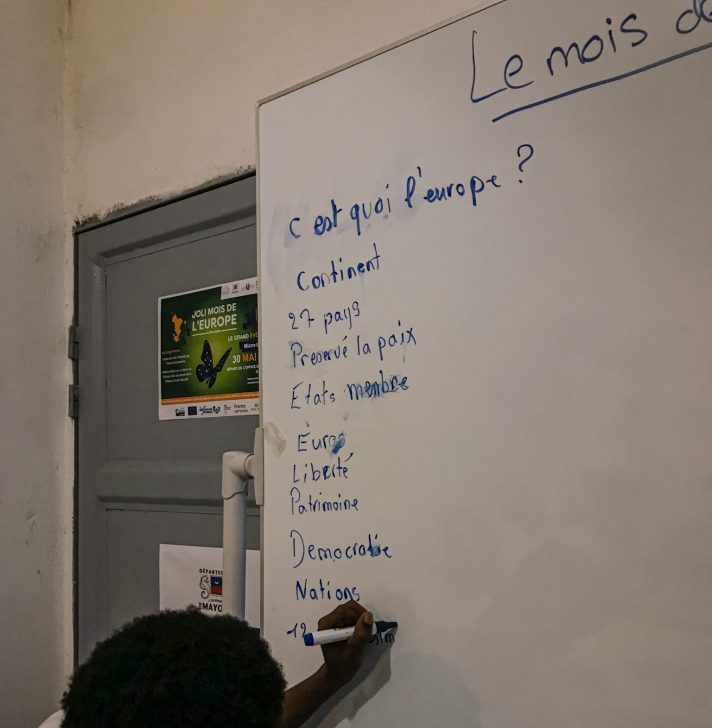 Le mois de
C'est quoi l'europe ?
Continent
27 pays
Preservé la paix
Etats membre
Euros
Liberté
Patrimoine
Democratie
Nations
12
JOLI MOIS DE
L'EUROPE
LE GRAND
30 MAI
France
services
DÉPARTE
MAYO